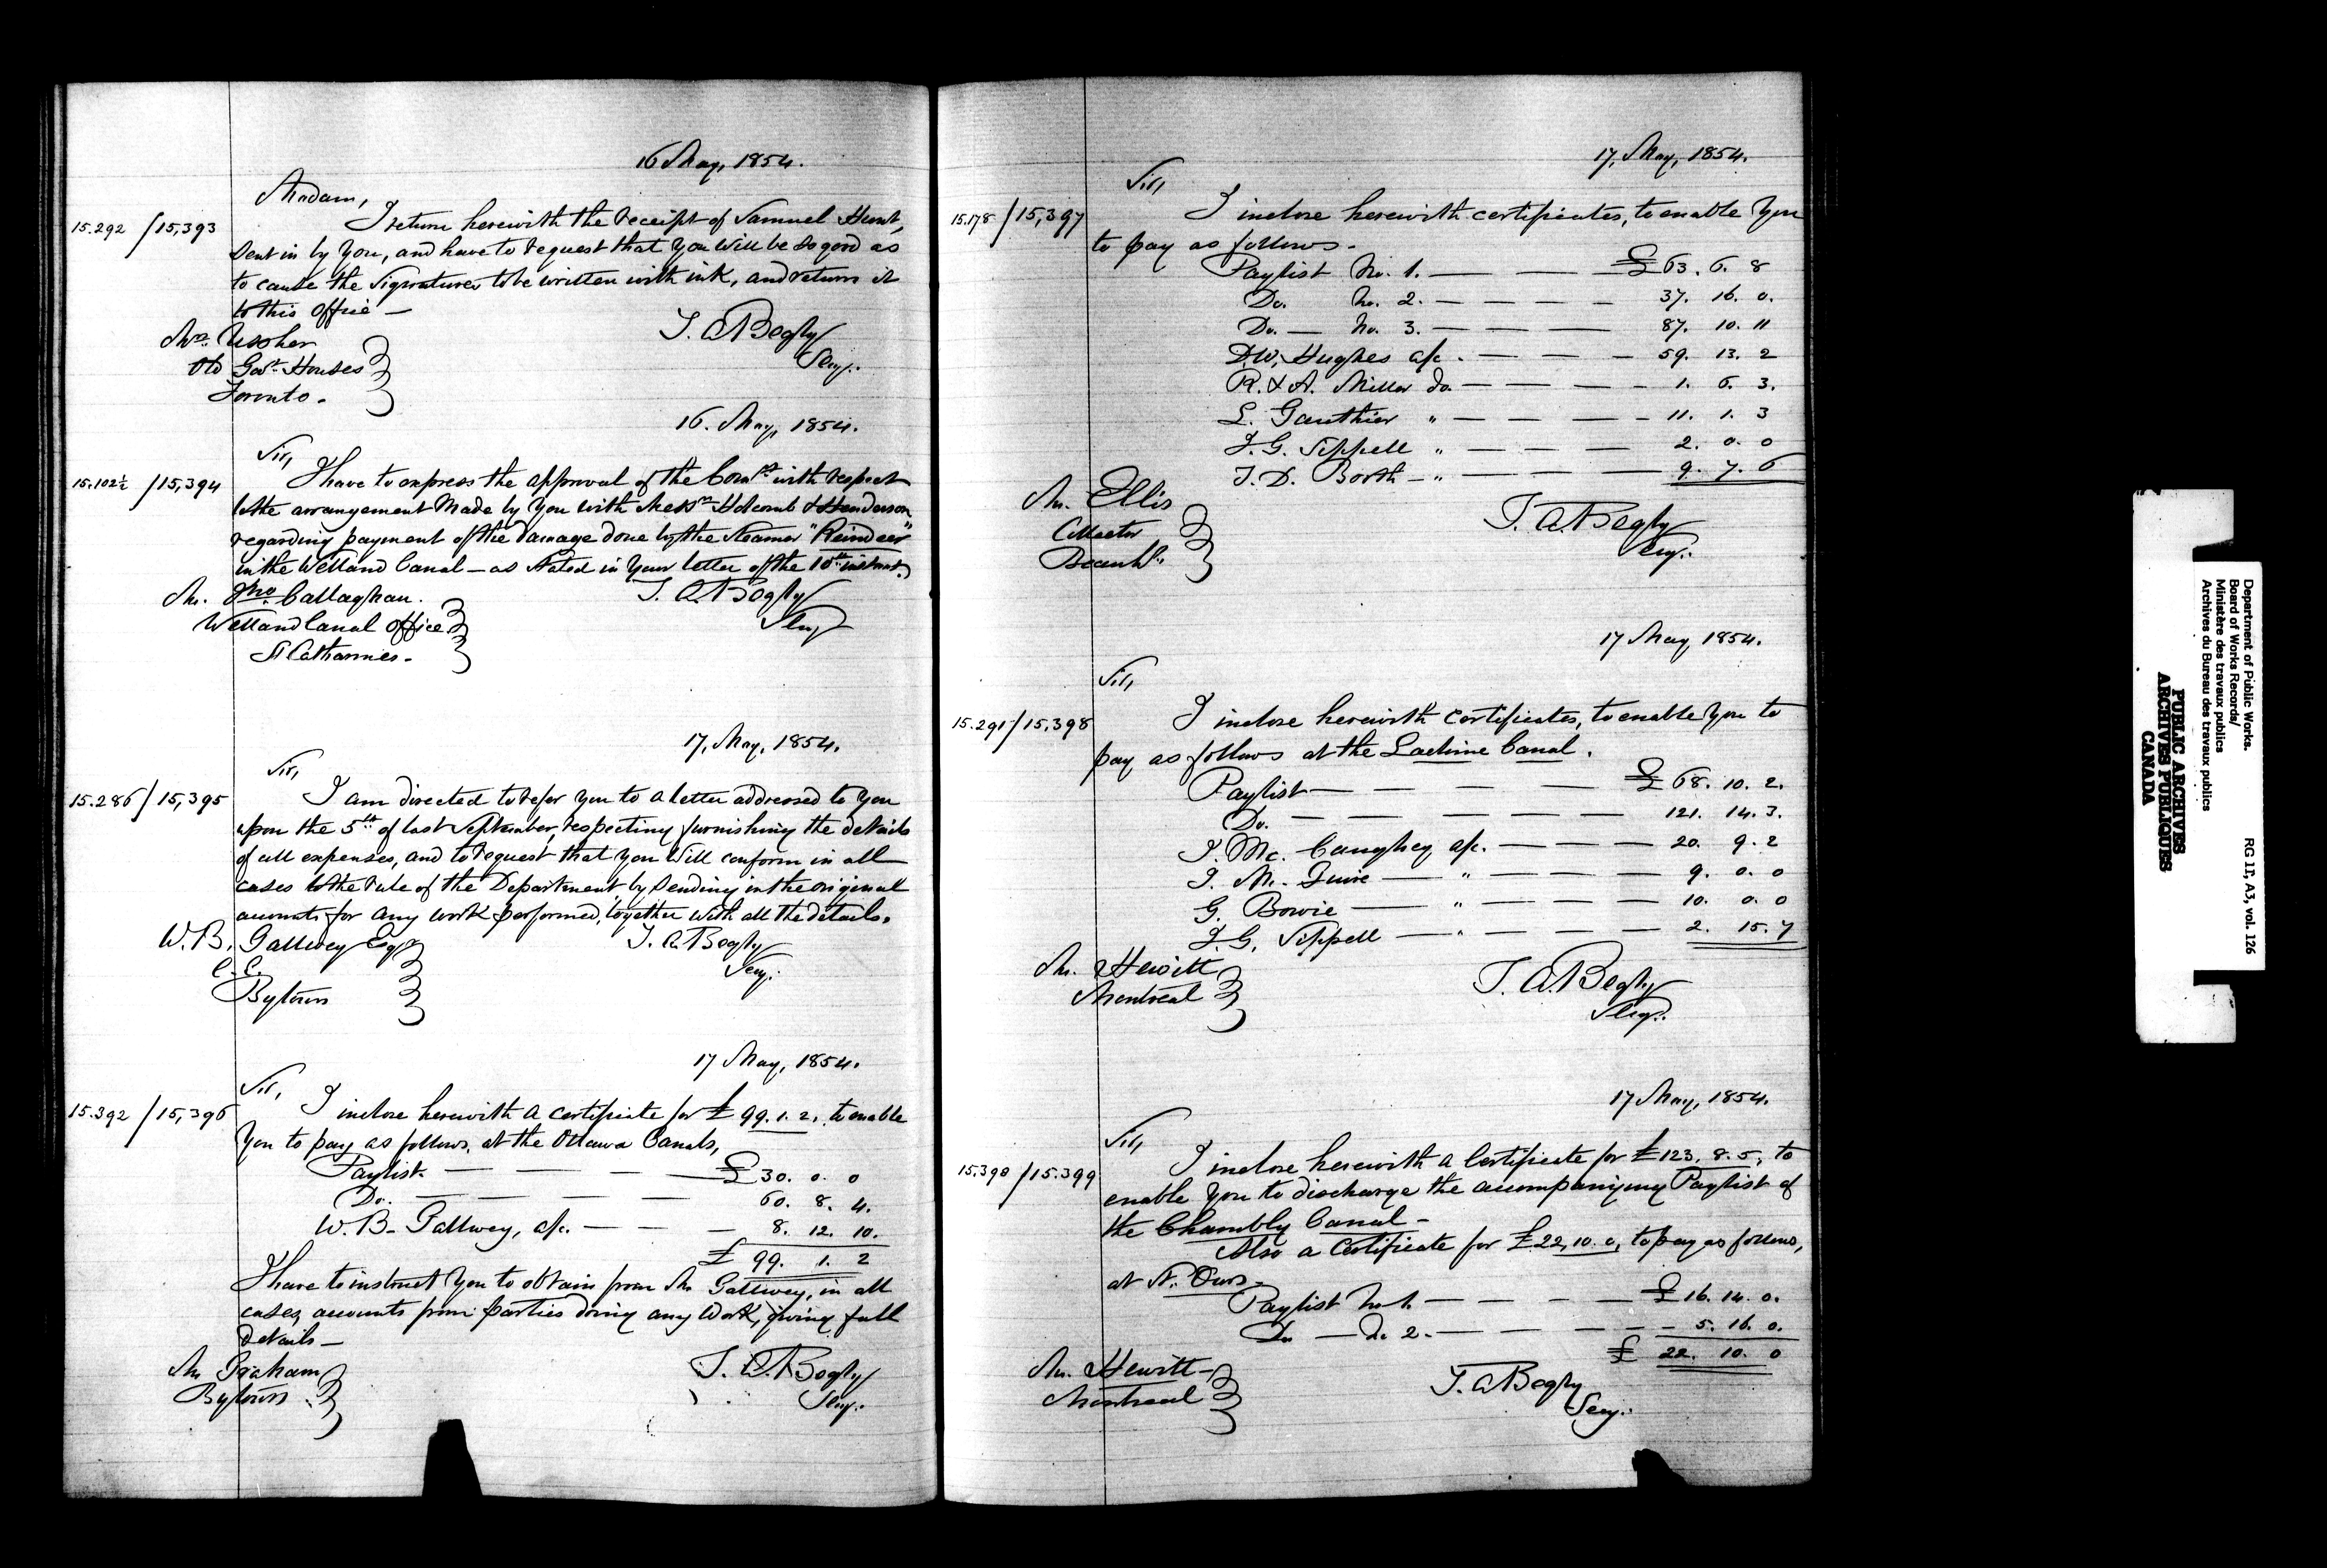 16 May, 1854.
Madam,
15.292 / 15,393
I return herewith the receipt of Samuel Hunt,
sent in by you, and have to request that you will be so good as
to cause the signatures to be written with ink, and return it
to this office —
T. A. Begly
Secy.
Mrs. Ussher
Old Govt. Houses
Toronto.
16. May, 1854.
Sir,
15.102½ / 15,394
I have to express the approval of the Comrs with respect
to the arrangement made by you with Messrs Holcomb & Henderson
regarding payment of the damage done by the steamer "Reindeer"
in the Welland Canal — as stated in your letter of the 10th instant.
T. A. Begly
Secy
Mr. Jno. Callaghan.
Welland Canal Office
St Catharines.
17, May, 1854.
Sir,
15.286 / 15,395
I am directed to refer you to a letter addressed to you
upon the 5th of last September, respecting furnishing the details
of all expenses, and to request that you will conform in all
cases to the rule of the Department, by sending in the original
accounts for any work performed, together with all the details.
T. A. Begly
Secy.
W. B. Gallwey Esqr
C. E.
Bytown
17 May, 1854.
Sir,
15.392 / 15,396
I inclose herewith a certificate for £99.1.2, to enable
you to pay as follows, at the Ottawa Canals,
Paylist — — — — £30. 0. 0
Do. — — — — 60. 8. 4.
W. B. Gallwey, a/c. — — — 8. 12. 10.
£ 99. 1. 2
I have to instruct you to obtain from Mr Gallwey, in all
cases, accounts from parties doing any work, giving full
details —
T. A. Begly
Secy.
Mr Graham
Bytown
17, May, 1854.
Sir,
15.178 / 15,397
I inclose herewith certificates, to enable you
to pay as follows —
Paylist No. 1. — — — £63. 6. 8
Do. No. 2. — — — — 37. 16. 0.
Do. — No. 3. — — — 87. 10. 11
D.W. Hughes a/c. — — — 59. 13. 2
R. & A. Miller do. — — — — 1. 6. 3.
L. Gauthier " — — — — 11. 1. 3
J. G. Sippell " — — — — 2. 0. 0
J. D. Booth — " — — — — 9. 7. 6
T. A. Begly
Secy.
Mr. Ellis
Collector
Beauhs.
17 May, 1854.
Sir,
15.291 / 15,398
I inclose herewith certificates, to enable you to
pay as follows at the Lachine Canal.
Paylist — — — — £ 68. 10. 2.
Do. — — — — — 121. 14. 3.
J. Mc. Caughey a/c. — — — 20. 9. 2
J. M. Quire — " — — — 9. 0. 0
G. Bowie — " — — — — 10. 0. 0
J. G. Sippell — " — — — — 2. 15. 7
T. A. Begly
Secy.
Mr. Hewitt
Montreal
17 May, 1854.
Sir,
15.390 / 15.399
I inclose herewith a Certificate for £123. 8. 5, to
enable you to discharge the accompanying Paylist of
the Chambly Canal —
Also a Certificate for £22, 10. 0, to pay as follows,
at St. Ours —
Paylist No 1. — — — — £16. 14. 0.
Do — do 2. — — — — — 5. 16. 0.
£ 22. 10. 0
T. A. Begly
Secy.
Mr. Hewitt —
Montreal
Department of Public Works.
Board of Works Records/
Ministère des travaux publics
Archives du Bureau des travaux publics
RG 11, A3, vol. 126
PUBLIC ARCHIVES
ARCHIVES PUBLIQUES
CANADA